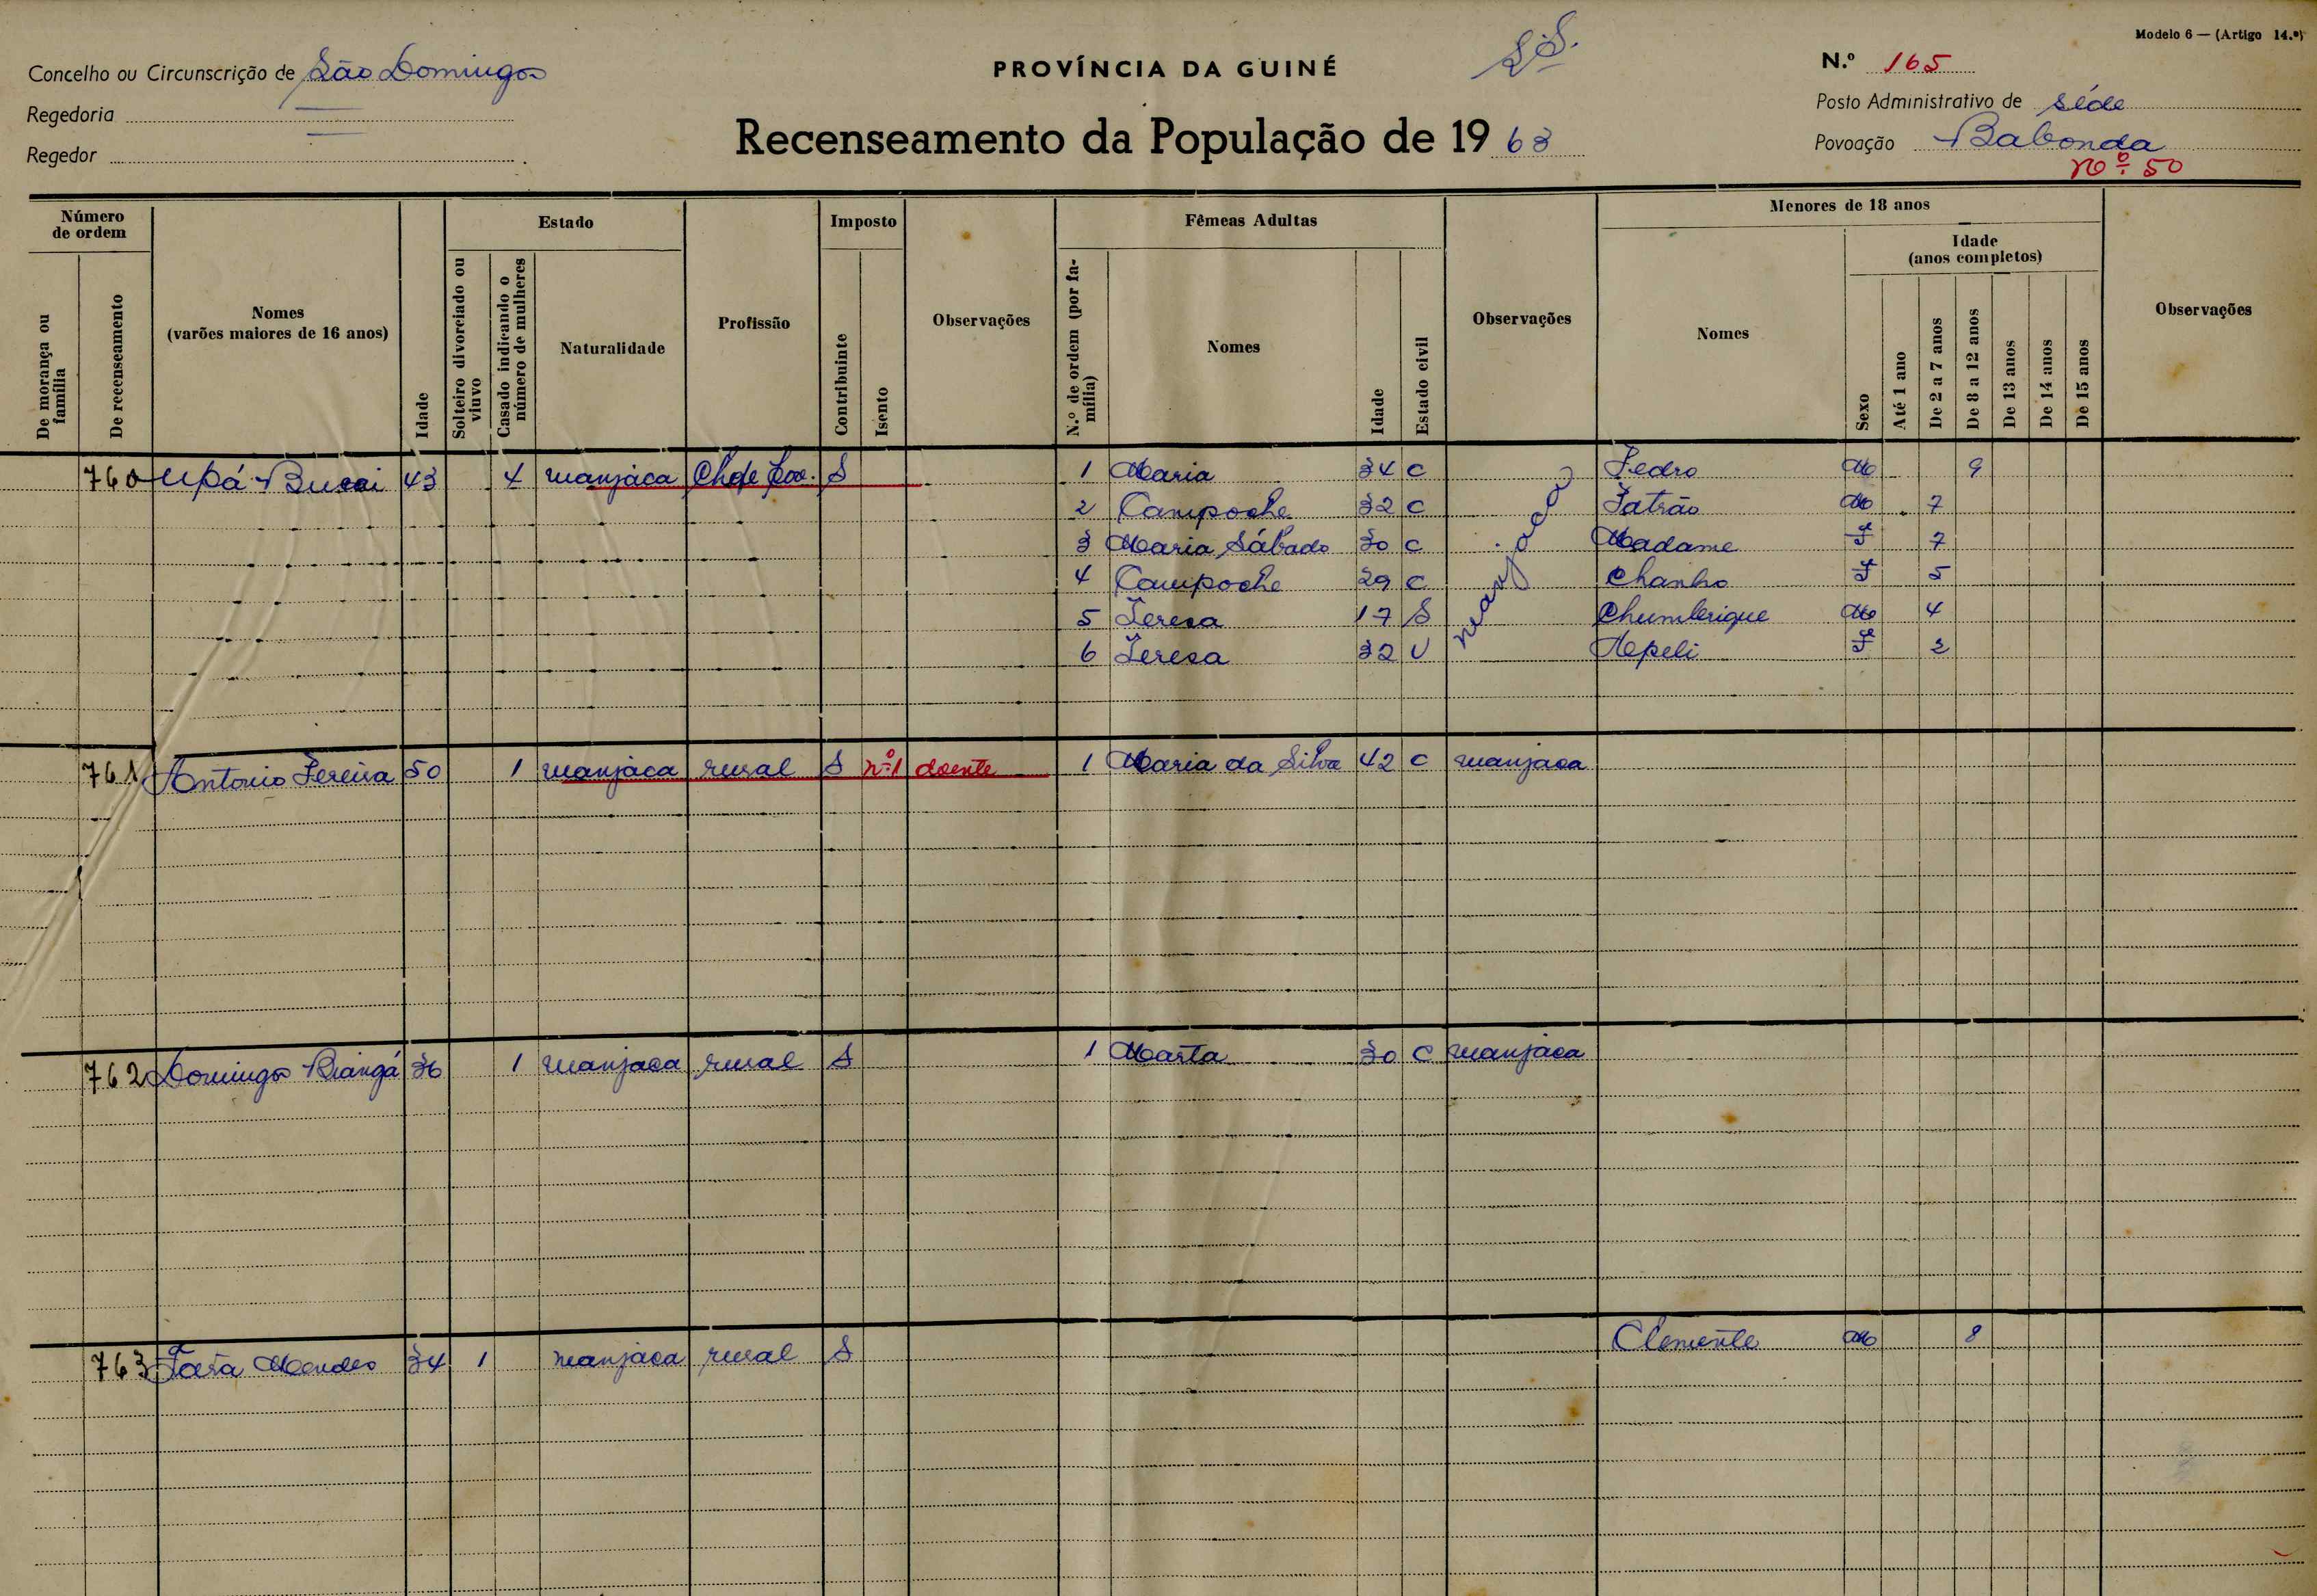 Modelo 6 — (Artigo 14.º)
Concelho ou Circunscrição de São Domingos
PROVÍNCIA DA GUINÉ
N.º 165
Regedoria
Posto Administrativo de Séde
Regedor
Recenseamento da População de 1963
Povoação Babonda
nº 50
Número de ordem
De morança ou família
De recenseamento
Nomes
(varões maiores de 16 anos)
Idade
Estado
Solteiro divorciado ou viuvo
Casado indicando o número de mulheres
Naturalidade
Profissão
Imposto
Contribuinte
Isento
Observações
Fêmeas Adultas
N.º de ordem (por família)
Nomes
Idade
Estado civil
Observações
Menores de 18 anos
Nomes
Sexo
Idade
(anos completos)
Até 1 ano
De 2 a 7 anos
De 8 a 12 anos
De 13 anos
De 14 anos
De 15 anos
Observações
760 Upá 43 4 manjaca Chefe S 1 Maria 34 C manjaca Pedro M 9
2 Campoche 32 C Patrão M 7
3 Maria Sábado 30 C Madame F 7
4 Campoche 29 C Chanho F 5
5 Teresa 17 S Chumberique M 4
6 Teresa 32 V Nepeli F 2
761 Antonio Pereira 50 1 manjaca rural S nº1 doente 1 Maria da Silva 42 C manjaca
762 Domingos Biangá 36 1 manjaca rural S 1 Marta 30 C manjaca
763 Mendes 34 1 manjaca rural S Clemente M 8